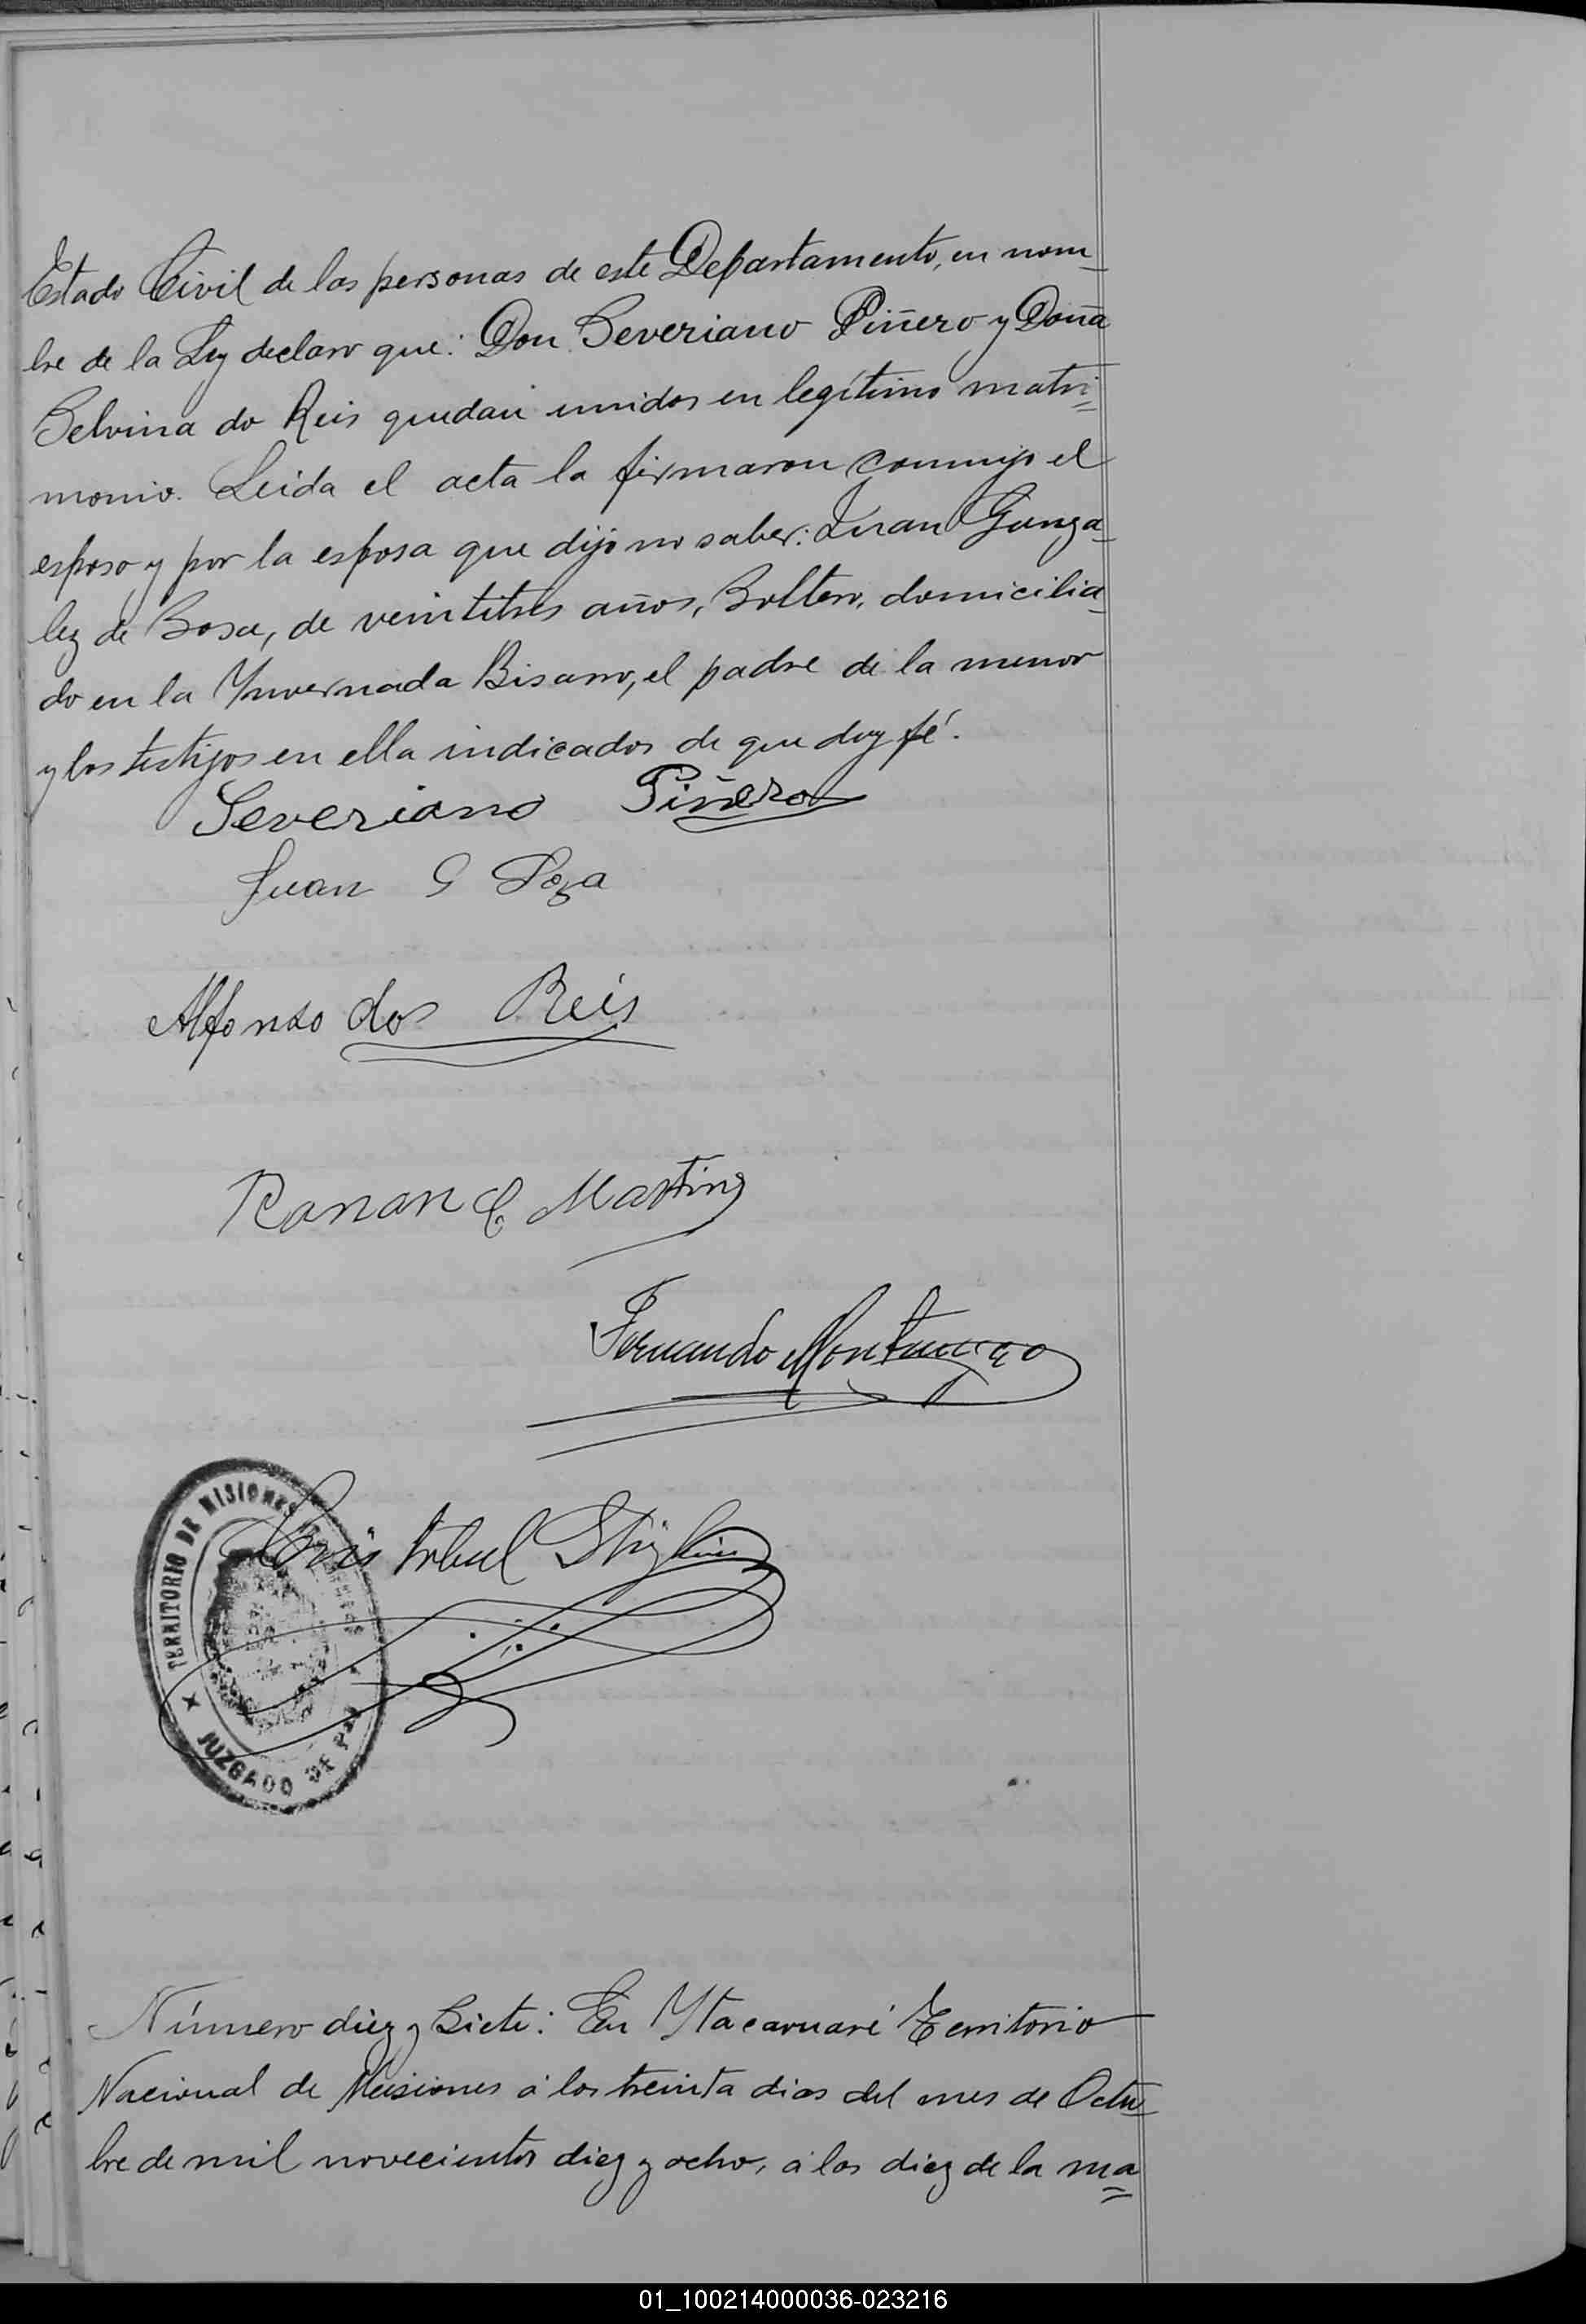 Estado Civil de las personas de este Departamento, en nom-
bre de la Ley declaro que: Don Severiano Piñero y Doña
Selvina do Reis quedan unidos en legítimo matri=
monio. Leida el acta la firmaron conmigo el
esposo y por la esposa que dijo no saber: Juan Gonza-
lez de Sosa, de veintitres años, Soltero, domicilia-
do en la Ynvernada Bisarro, el padre de la menor
y los testigos en ella indicados de que doy fé.
Severiano Piñero
Juan G Soza
Alfonso dos Reis
Martins
Fernando
Cristobal
TERRITORIO DE MISIONES
JUZGADO DE PAZ
Número diez y Siete: En Ytacaruaré Territorio
Nacional de Misiones á los treinta dias del mes de Octu-
bre de mil novecientos diez y ocho, á las diez de la ma=
01_100214000036-023216